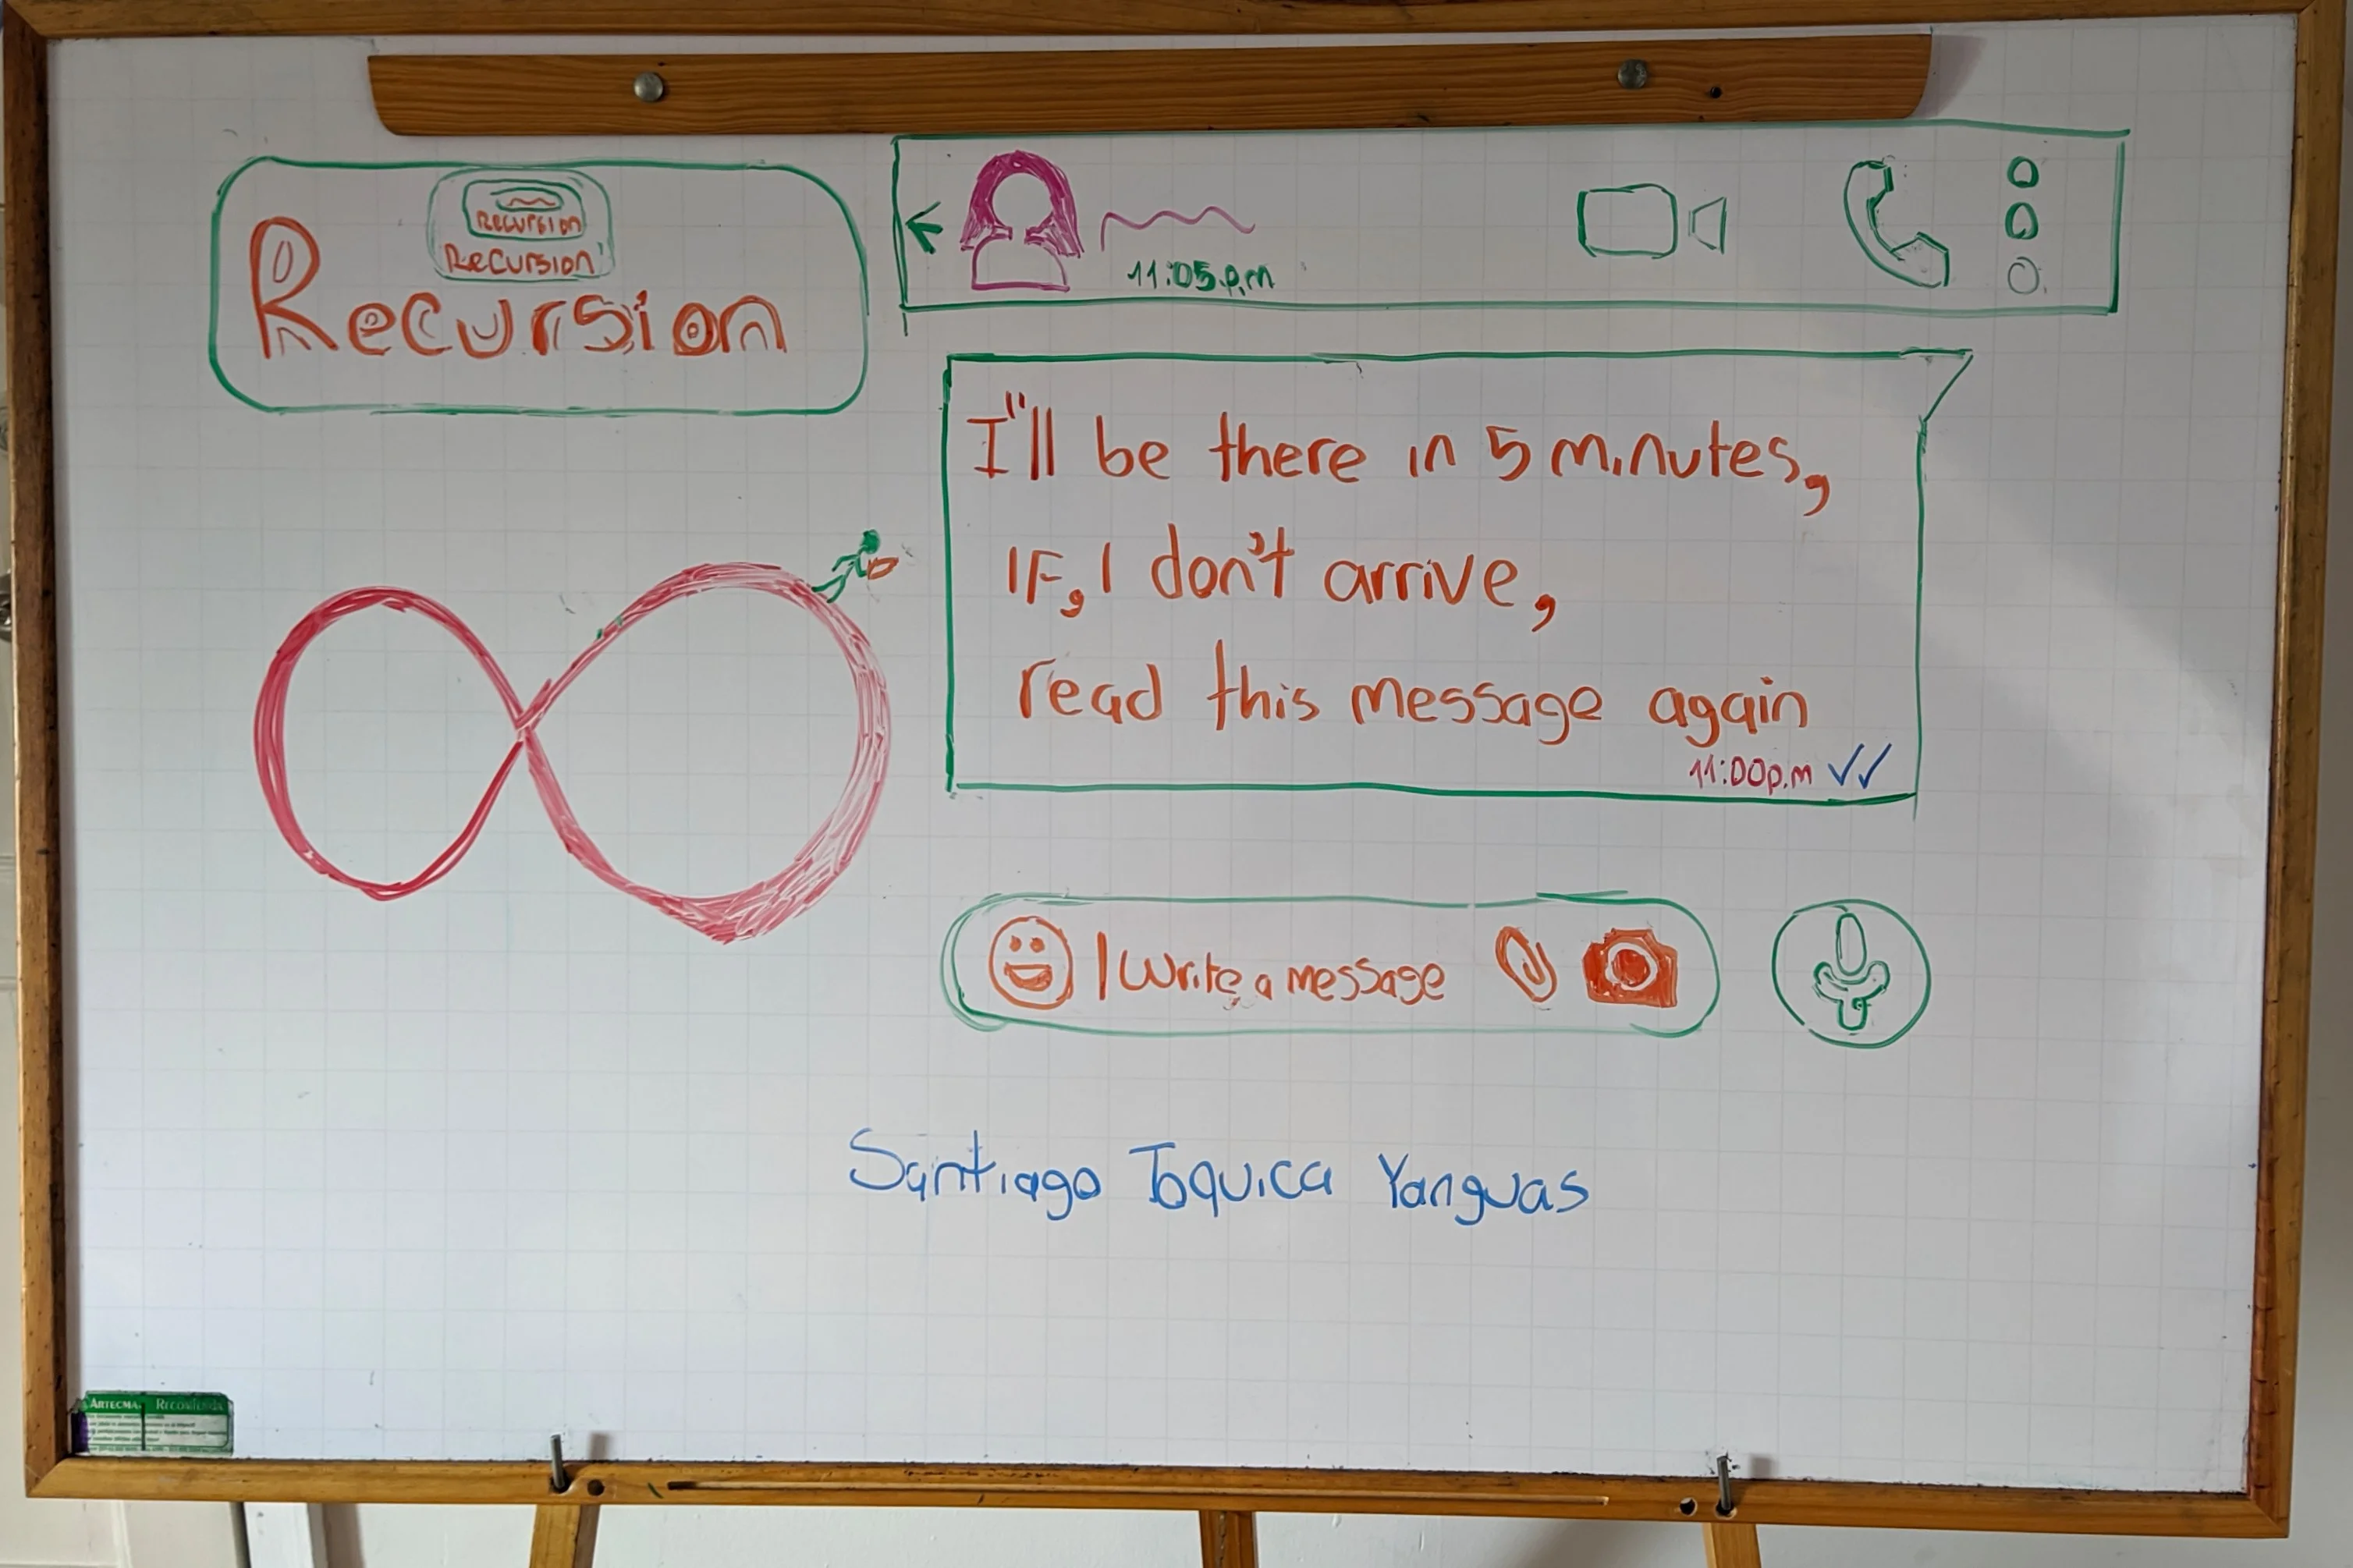 Recursion
Recursion
Recursion
11:05 p.m
I"ll be there in 5 minutes,
IF, I don't arrive,
read this message again
11:00p.m
Write a message
Santiago Toquica Yanguas
ARTECMA